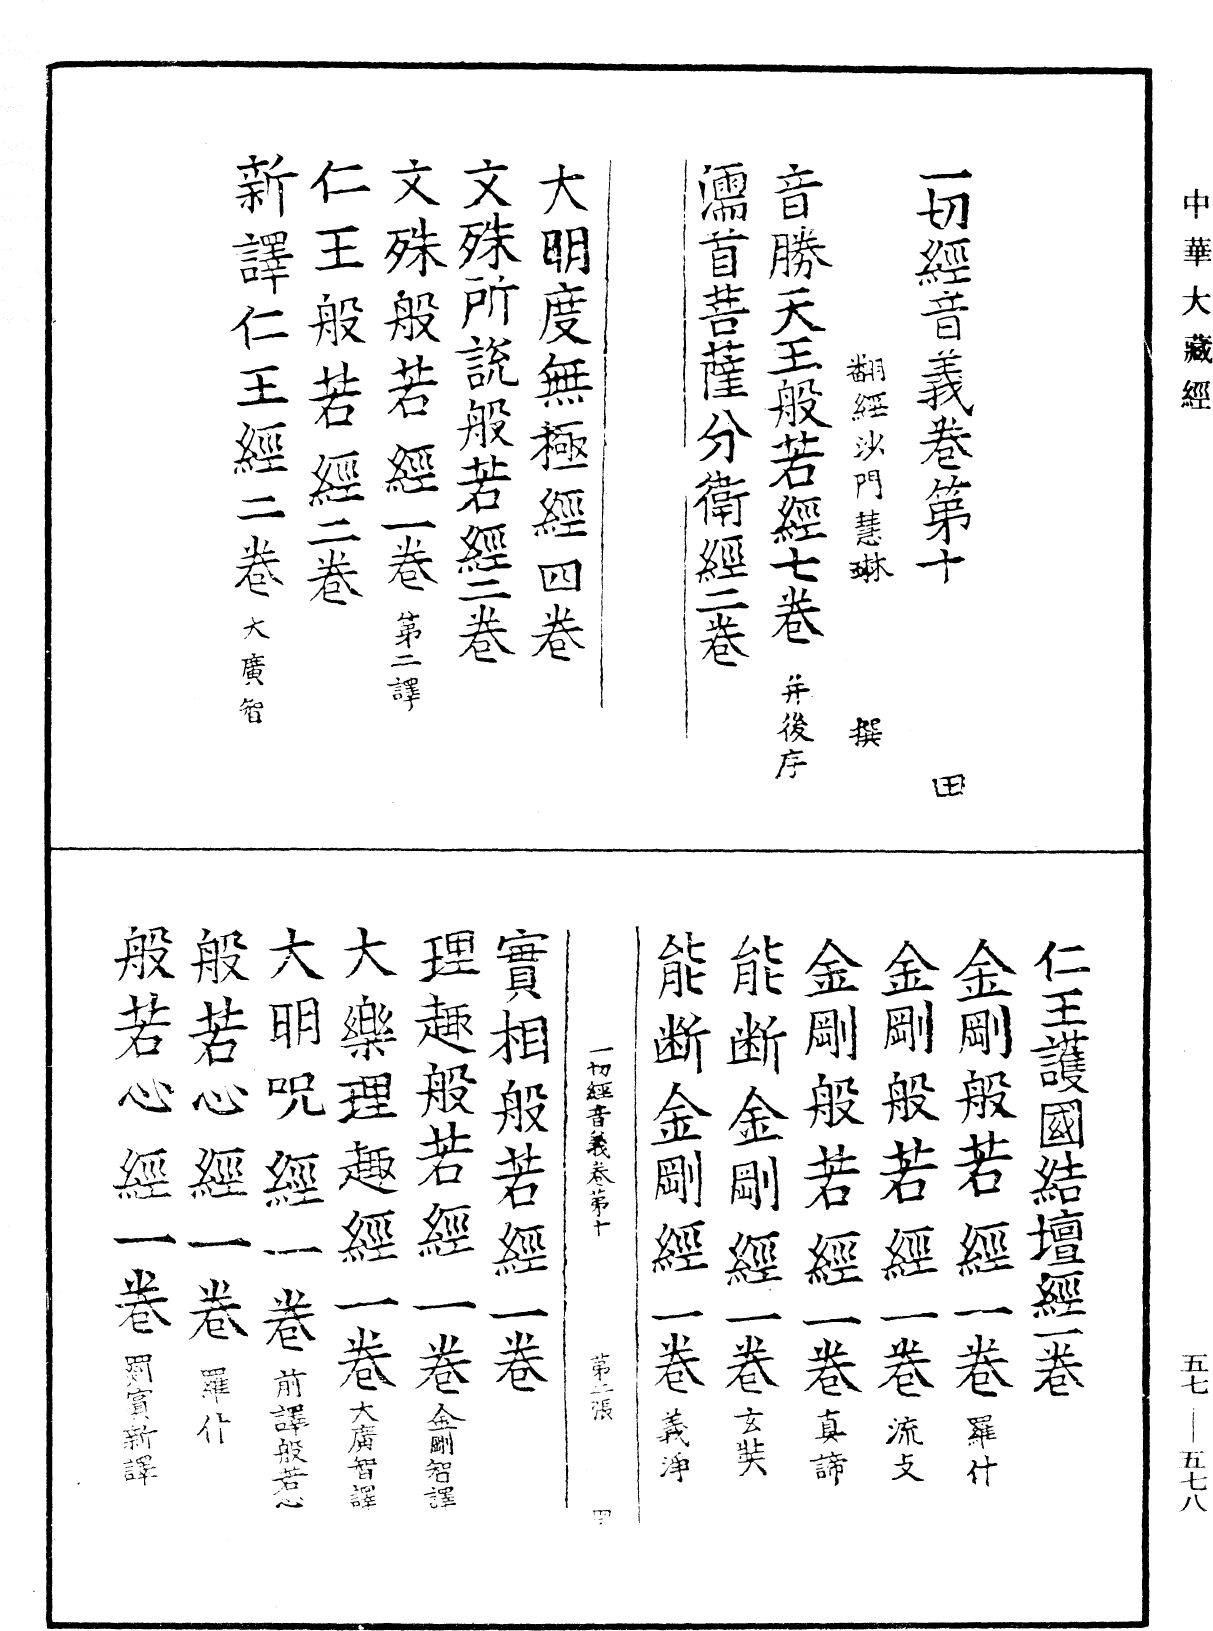 中華大藏經
一切經音義卷第十 田
翻經沙門慧琳 撰
音勝天王般若經七卷 并後序
濡首菩薩分衛經二卷
大明度無極經四卷
文殊所說般若經二卷
文殊般若經一卷 第二譯
仁王般若經二卷
新譯仁王經二卷 大廣智
仁王護國結壇經一卷
金剛般若經一卷 羅什
金剛般若經一卷 流支
金剛般若經一卷 真諦
能断金剛經一卷 玄奘
能断金剛經一卷 義淨
一切經音義卷第十 第二張
實相般若經一卷
理趣般若經一卷 金剛智譯
大樂理趣經一卷 大廣智譯
大明呪經一卷 前譯般若心
般若心經一卷 羅什
般若心經一卷 罽賓新譯
五七—五七八